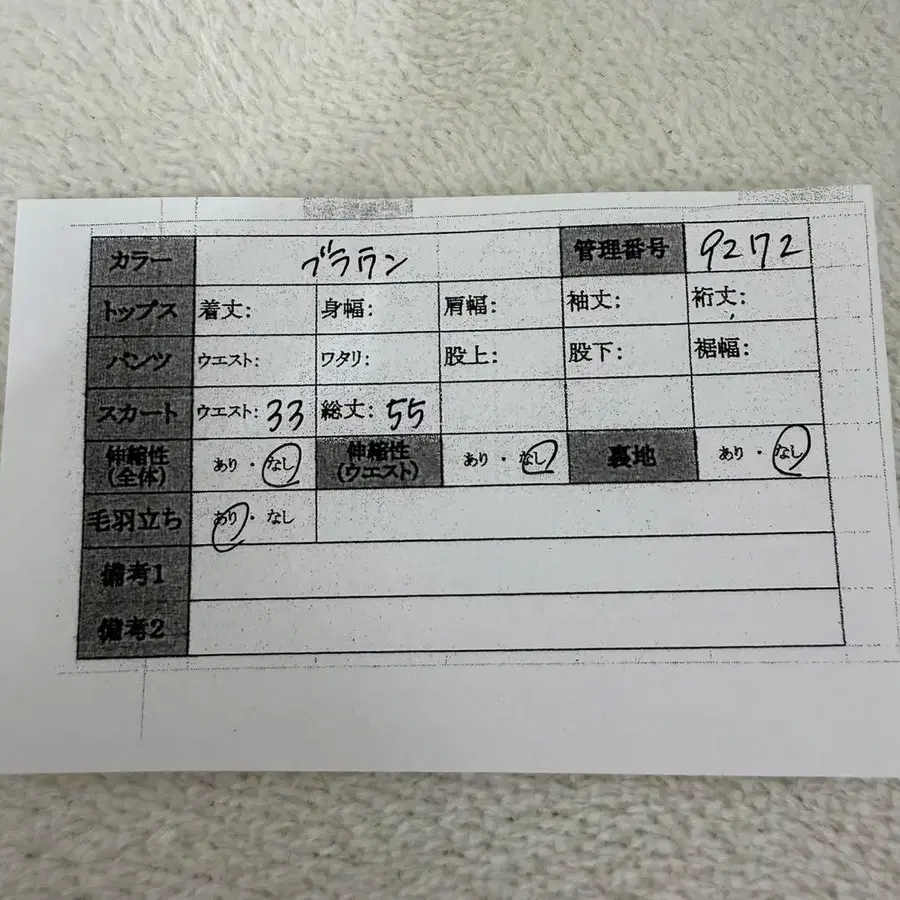 カラー ブラウン 管理番号 9272
トップス 着丈: 身幅: 肩幅: 袖丈: 裄丈:
パンツ ウエスト: ワタリ: 股上: 股下: 裾幅:
スカート ウエスト: 33 総丈: 55
伸縮性(全体) あり・なし 伸縮性(ウエスト) あり・なし 裏地 あり・なし
毛羽立ち あり・なし
備考1
備考2